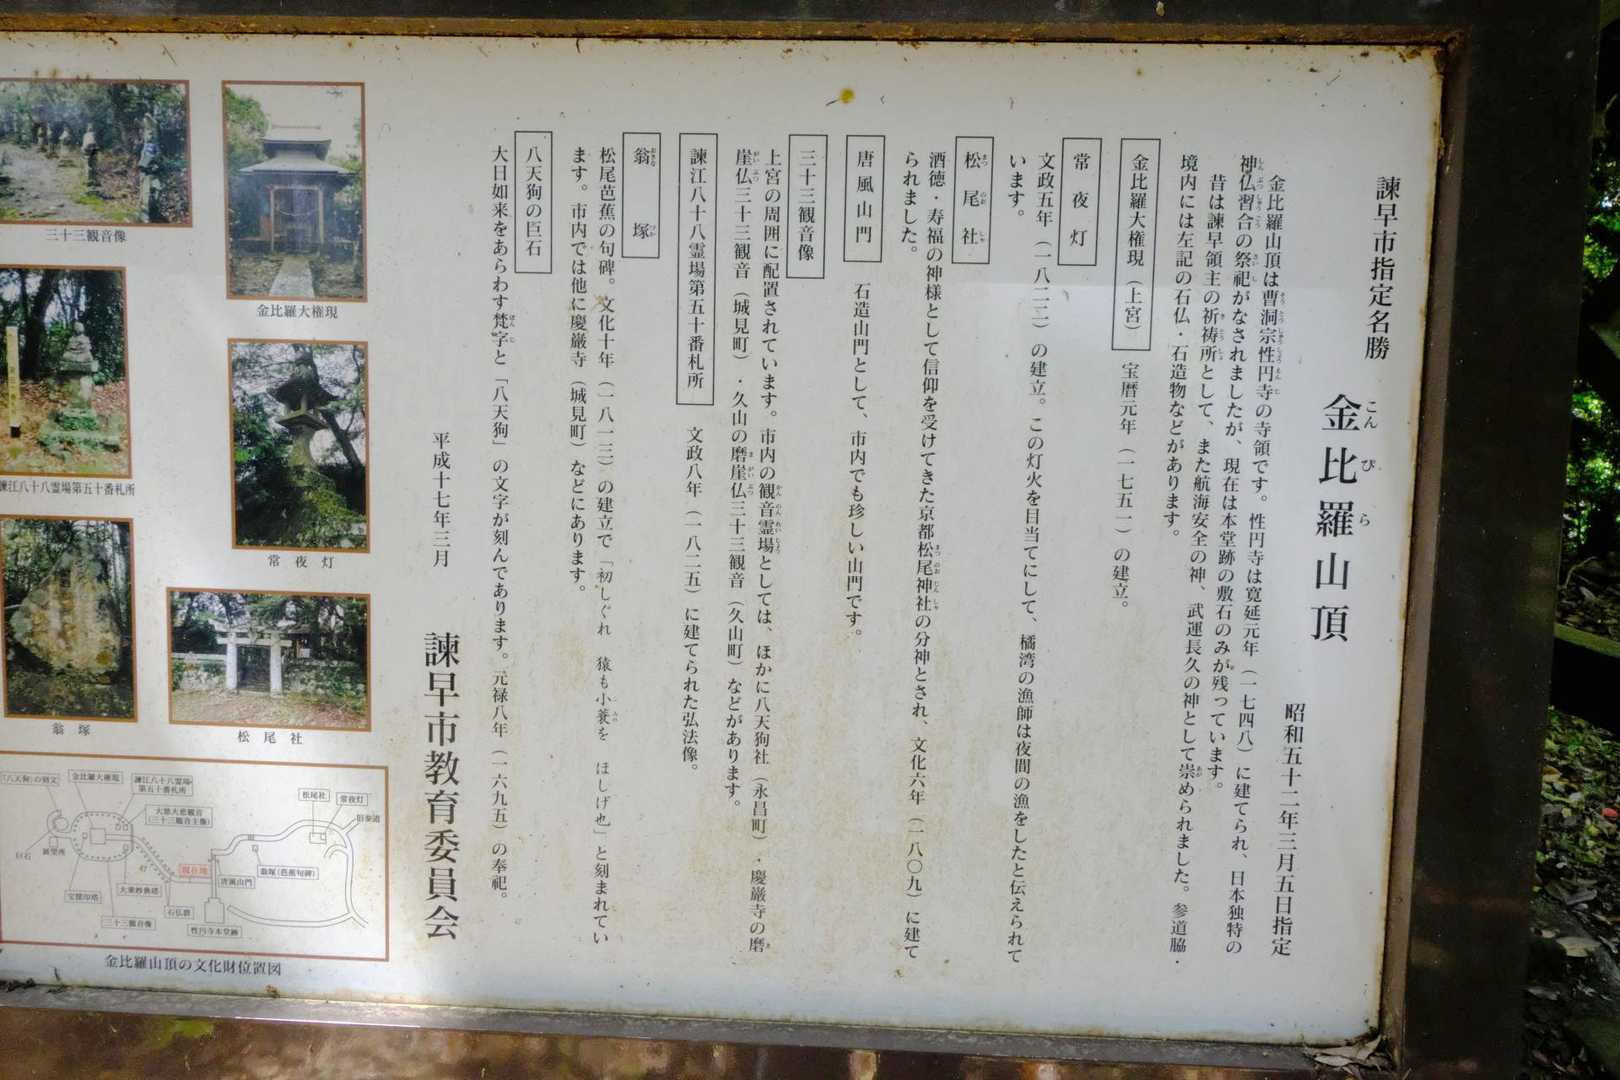 諫早市指定名勝
金比羅山頂
こんぴら
昭和五十二年三月五日指定
金比羅山頂は曹洞宗性円寺の寺領です。性円寺は寛延元年（一七四八）に建てられ、日本独特の
神仏習合の祭祀がなされましたが、現在は本堂跡の敷石のみが残っています。
昔は諫早領主の祈祷所として、また航海安全の神、武運長久の神として崇められました。参道脇・
境内には左記の石仏・石造物などがあります。
金比羅大権現（上宮） 宝暦元年（一七五一）の建立。
常夜灯
文政五年（一八二二）の建立。この灯火を目当てにして、橘湾の漁師は夜間の漁をしたと伝えられて
います。
松尾社
酒徳・寿福の神様として信仰を受けてきた京都松尾神社の分神とされ、文化六年（一八〇九）に建て
られました。
唐風山門 石造山門として、市内でも珍しい山門です。
三十三観音像
上宮の周囲に配置されています。市内の観音霊場としては、ほかに八天狗社（永昌町）・慶巌寺の磨
崖仏三十三観音（城見町）・久山の磨崖仏三十三観音（久山町）などがあります。
諫江八十八霊場第五十番札所 文政八年（一八二五）に建てられた弘法像。
翁塚
松尾芭蕉の句碑。文化十年（一八一三）の建立で「初しぐれ 猿も小蓑を ほしげ也」と刻まれてい
ます。市内では他に慶巌寺（城見町）などにあります。
八天狗の巨石
大日如来をあらわす梵字と「八天狗」の文字が刻んであります。元禄八年（一六九五）の奉祀。
平成十七年三月
諫早市教育委員会
金比羅大権現
三十三観音像
常夜灯
諫江八十八霊場第五十番札所
松尾社
翁塚
「八天狗」の刻文
金比羅大権現
諫江八十八霊場
第五十番札所
大慈大悲観音
（三十三観音主像）
松尾社
常夜灯
旧参道
巨石
展望所
現在地
翁塚（芭蕉句碑）
唐風山門
宝篋印塔
石仏群
三十三観音像
性円寺本堂跡
金比羅山頂の文化財位置図